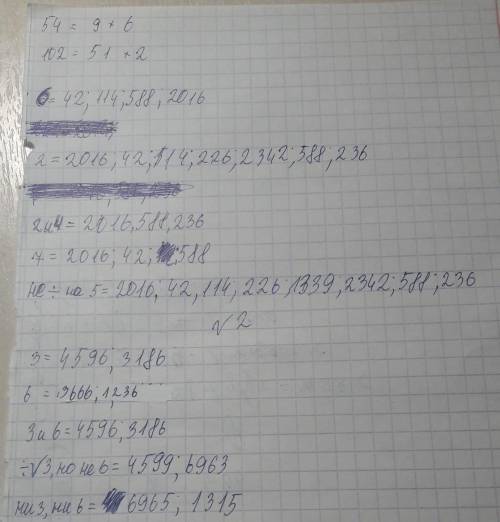 54 = 9 * 6
102 = 51 * 2
6 = 42; 114; 588; 2016
2 = 2016; 42; 114; 226; 2342; 588; 236
2 и 4 = 2016, 588, 236
7 = 2016; 42; 588
не ÷ на 5 = 2016; 42, 114, 226, 1339, 2342; 588; 236
√2
3 = 4596; 3186
6 = 3666; 1236
3 и 6 = 4596; 3186
÷√3, но не 6 = 4599; 6963
ни 3, ни 6 = 6965; 1315